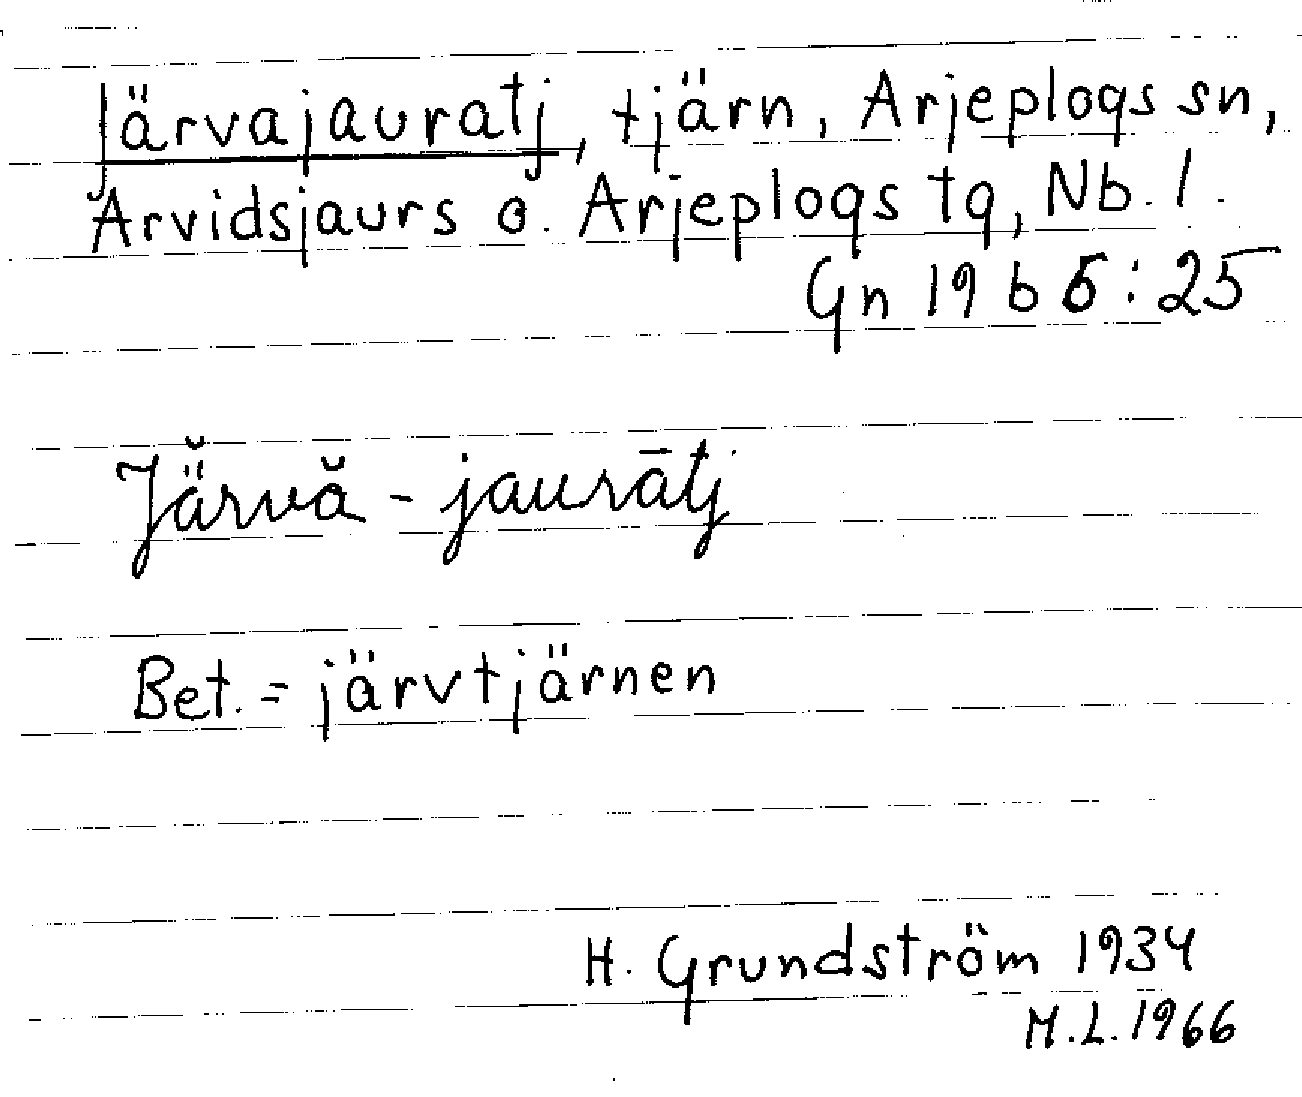 Järvajauratj, tjärn, Arjeplogs sn,
Arvidsjaurs o. Arjeplogs tg, Nb. l.
Gn 19 b 5:25
Jä̆rvă - jaurātj
Bet. = järvtjärnen
H. Grundström 1934
M.L. 1966